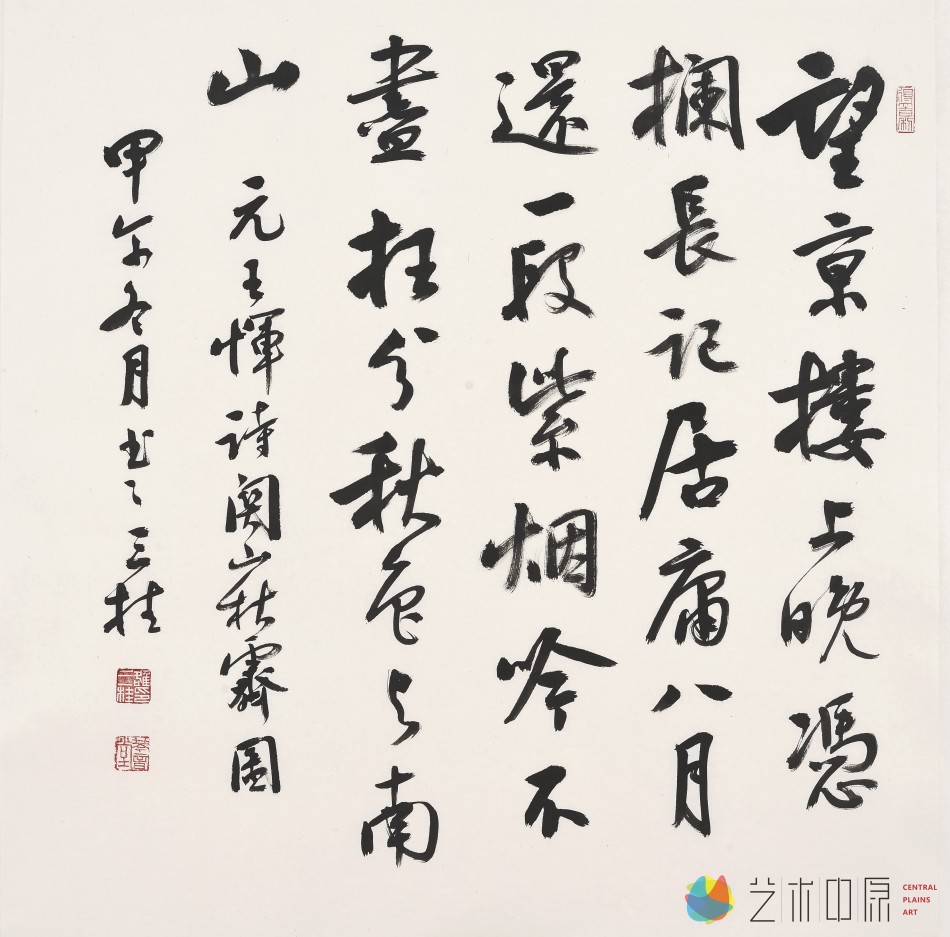 望京樓上晚憑
欄長記居庸八月
還一段紫烟吟不
盡枉分秋色与南
山 元王惲詩關山秋霽圖
甲午冬月书之三桂
艺术中原
CENTRAL
PLAINS
ART